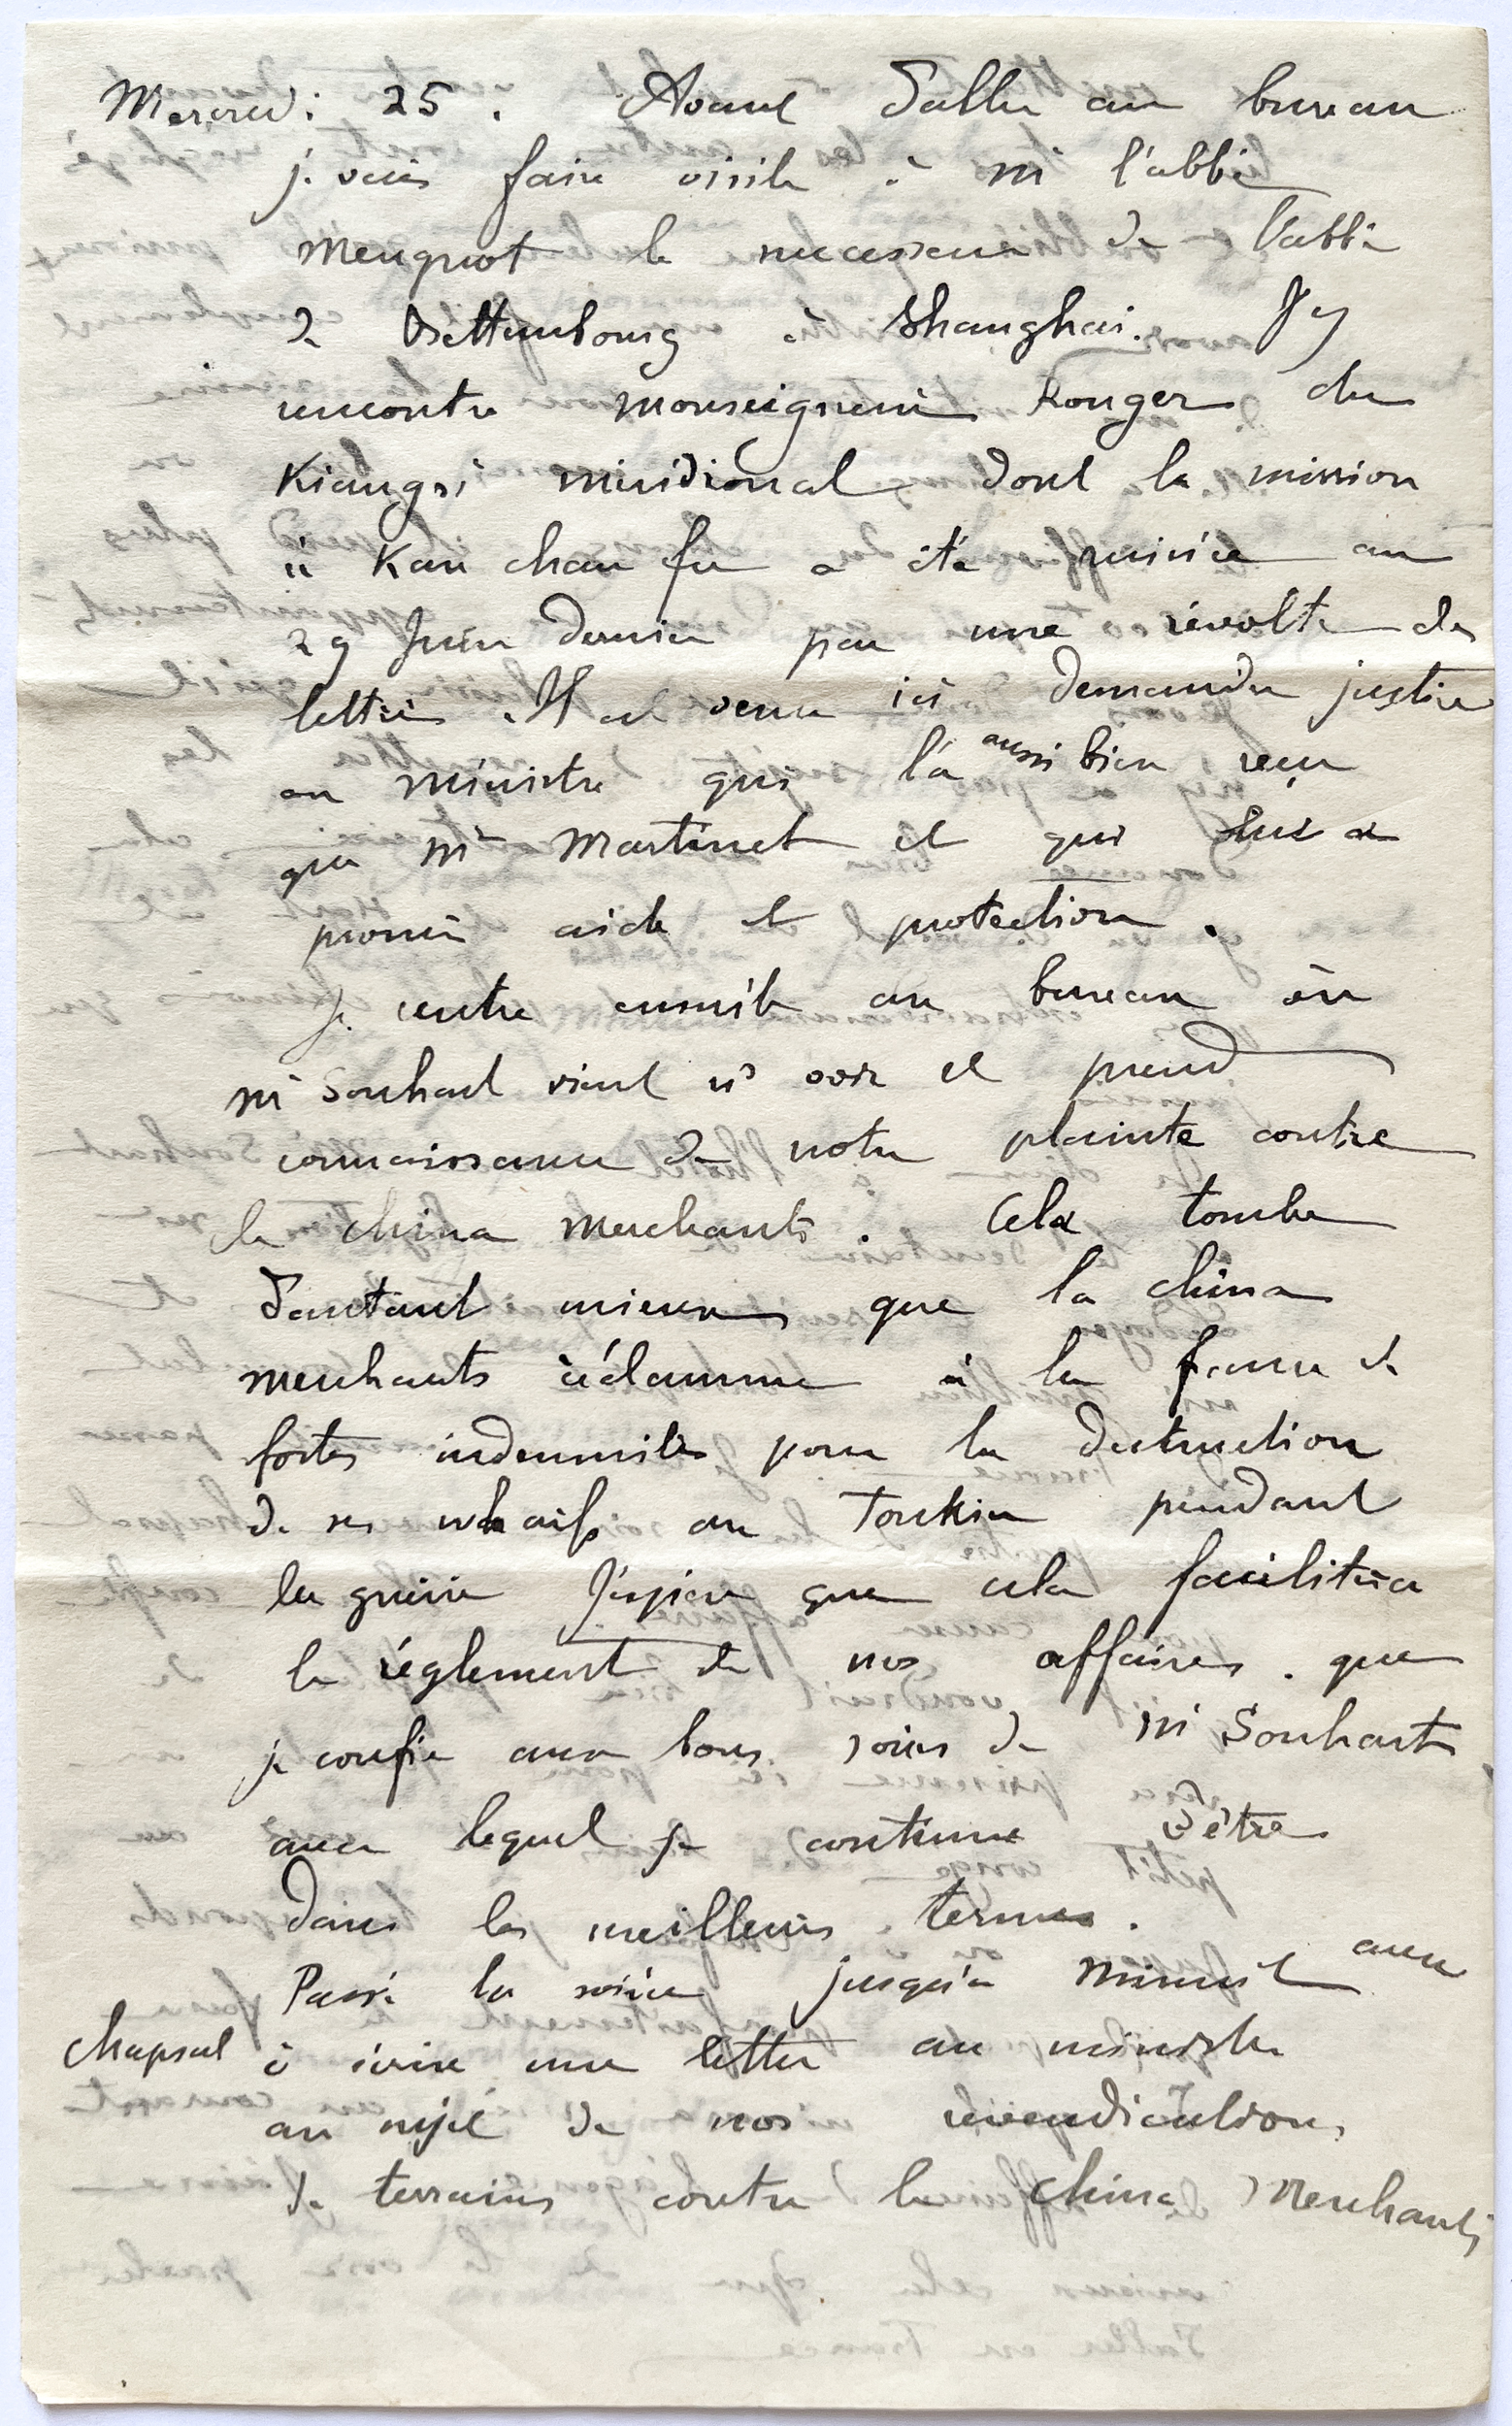 Mercredi 25. Avant d'aller au bureau
je vais faire visite à Mr l'abbé
Meugniot le successeur de l'abbé
de Bettembourg à Shanghai. J'y
rencontre Monseigneur Rouger du
Kiangsi méridional dont la mission
à Kan chau fu a été ruinée au
29 Juin dernier par une révolte des
lettrés. Il est venu ici demander justice
au ministre qui l'a aussi bien reçu
que Mr Martinet et qui lui a
promis aide et protection.
Je rentre ensuite au bureau où
Mr Souhart vient ns voir et prend
connaissance de notre plainte contre
la China Merchants. Cela tombe
d'autant mieux que la China
Merchants réclamme à la France de
fortes indemnités pour la destruction
de ses wharfs au Tonkin pendant
la guerre J'espère que cela facilitera
le règlement de nos affaires. que
je confie aux bons soins de Mr Souhart
avec lequel je continue d'être
dans les meilleurs termes.
Passé la soirée jusqu'à minuit avec
Chapsal à écrire une lettre au ministre
au sujet de nos revendications
de terrains contre la China Merchants